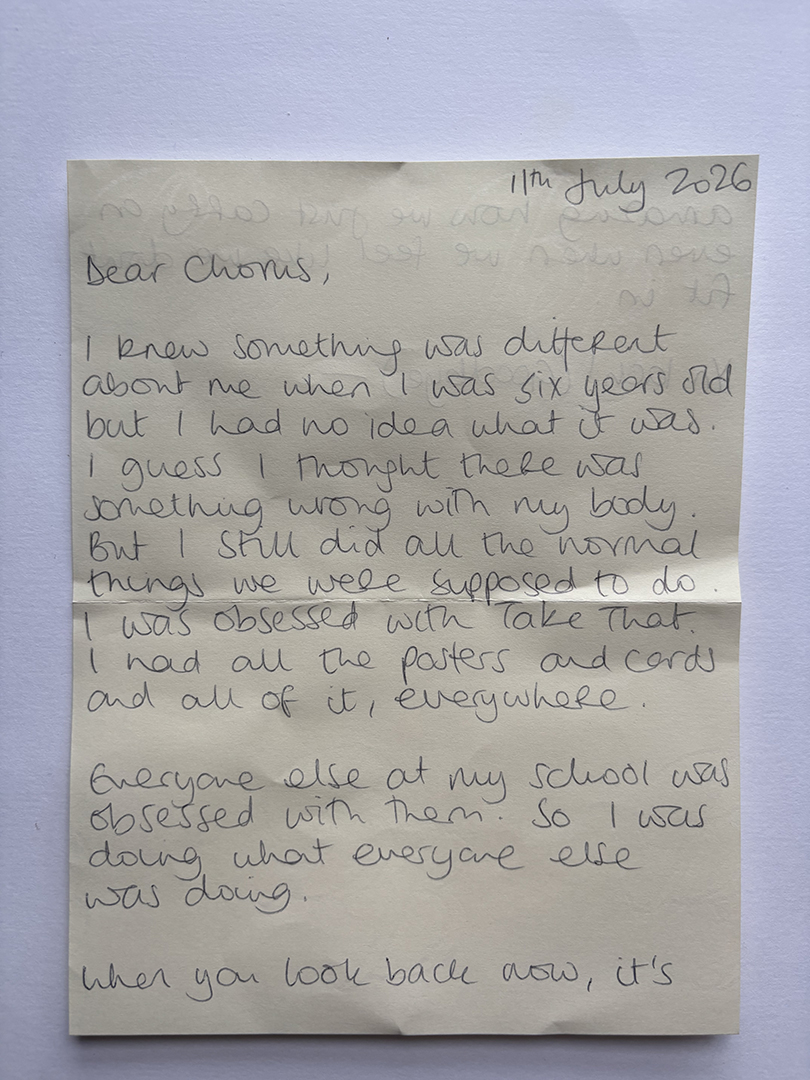 11th July 2026
Dear Chorus,
I knew something was different
about me when I was six years old
but I had no idea what it was.
I guess I thought there was
something wrong with my body.
But I still did all the normal
things we were supposed to do.
I was obsessed with Take That.
I had all the posters and cards
and all of it, everywhere.
Everyone else at my school was
obsessed with them. So I was
doing what everyone else
was doing.
When you look back now, it's
amazing how we just carry on
even when we feel like we don't
fit in.